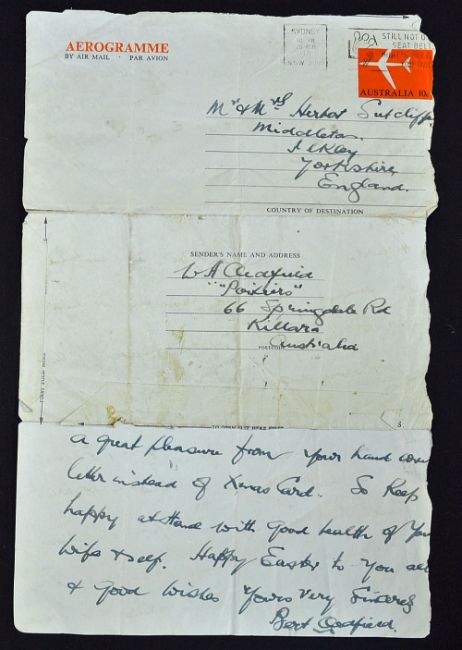 AEROGRAMME
BY AIR MAIL · PAR AVION
SYDNEY
STILL NOT
SEAT BELT
AUSTRALIA 10c
Mr & Mrs Herbert Sutcliffe
Middleton
Ilkley
Yorkshire
England.
COUNTRY OF DESTINATION
SENDER'S NAME AND ADDRESS
W A Oldfield
"Poitiers"
66 Springdale Rd
Killara
Australia
a great pleasure from your hand
letter instead of Xmas Card. So Keep
happy at Home with Good health of Your
Wife & self. Happy Easter to You all
& Good Wishes Yours Very Sincerely
Bert Oldfield.